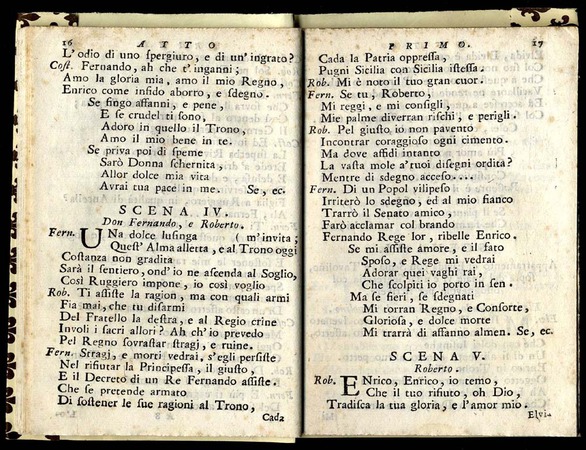 16 ATTO
L'odio di uno spergiuro, e di un'ingrato?
Cost. Fernando, ah che t'inganni;
Amo la gloria mia, amo il mio Regno,
Enrico come infido aborro, e sdegno.
Se fingo affanni, e pene,
E se crudel ti sono,
Adoro in quello il Trono,
Amo il mio bene in te.
Se priva poi di speme
Sarò Donna schernita,
Allor dolce mia vita
Avrai tua pace in me. Se, ec.
SCENA IV.
Don Fernando, e Roberto.
Fern. UNa dolce lusinga ( m'invita;
Quest'Alma alletta, e al Trono oggi
Costanza non gradita
Sarà il sentiero, ond'io ne ascenda al Soglio,
Così Ruggiero impone, io così voglio
Rob. Ti assiste la ragion, ma con quali armi
Fia mai, che tu disarmi
Del Fratello la destra, e al Regio crine
Involi i sacri allori? Ah ch'io prevedo
Pel Regno sovrastar stragj, e ruine.
Fern. Stragj, e morti vedrai, s'egli persiste
Nel rifiutar la Principessa, il giusto,
E il Decreto di un Re Fernando assiste.
Che se pretende armato
Di sostener le sue ragioni al Trono,
Cada
PRIMO. 17
Cada la Patria oppressa,
Pugni Sicilia con Sicilia istessa.
Rob. Mi è noto il tuo gran cuor.
Fern. Se tu, Roberto,
Mi reggi, e mi consigli,
Mie palme diverran rischi, e perigli.
Rob. Pel giusto io non pavento
Incontrar coraggioso ogni cimento.
Ma dove affidi intanto
La vasta mole a'tuoi disegni ordita?
Mentre di sdegno acceso....
Fern. Di un Popol vilipeso
Irriterò lo sdegno, ed al mio fianco
Trarrò il Senato amico,
Farò acclamar col brando
Fernando Rege lor, ribelle Enrico.
Se mi assiste amore, e il fato
Sposo, e Rege mi vedrai
Adorar quei vaghi rai,
Che scolpiti io porto in sen.
Ma se fieri, se sdegnati
Mi torran Regno, e Consorte,
Gloriosa, e dolce morte
Mi trarrà di affanno almen. Se, ec.
SCENA V.
Roberto.
Rob. ENrico, Enrico, io temo,
Che il tuo rifiuto, oh Dio,
Tradisca la tua gloria, e l'amor mio.
Elvi-